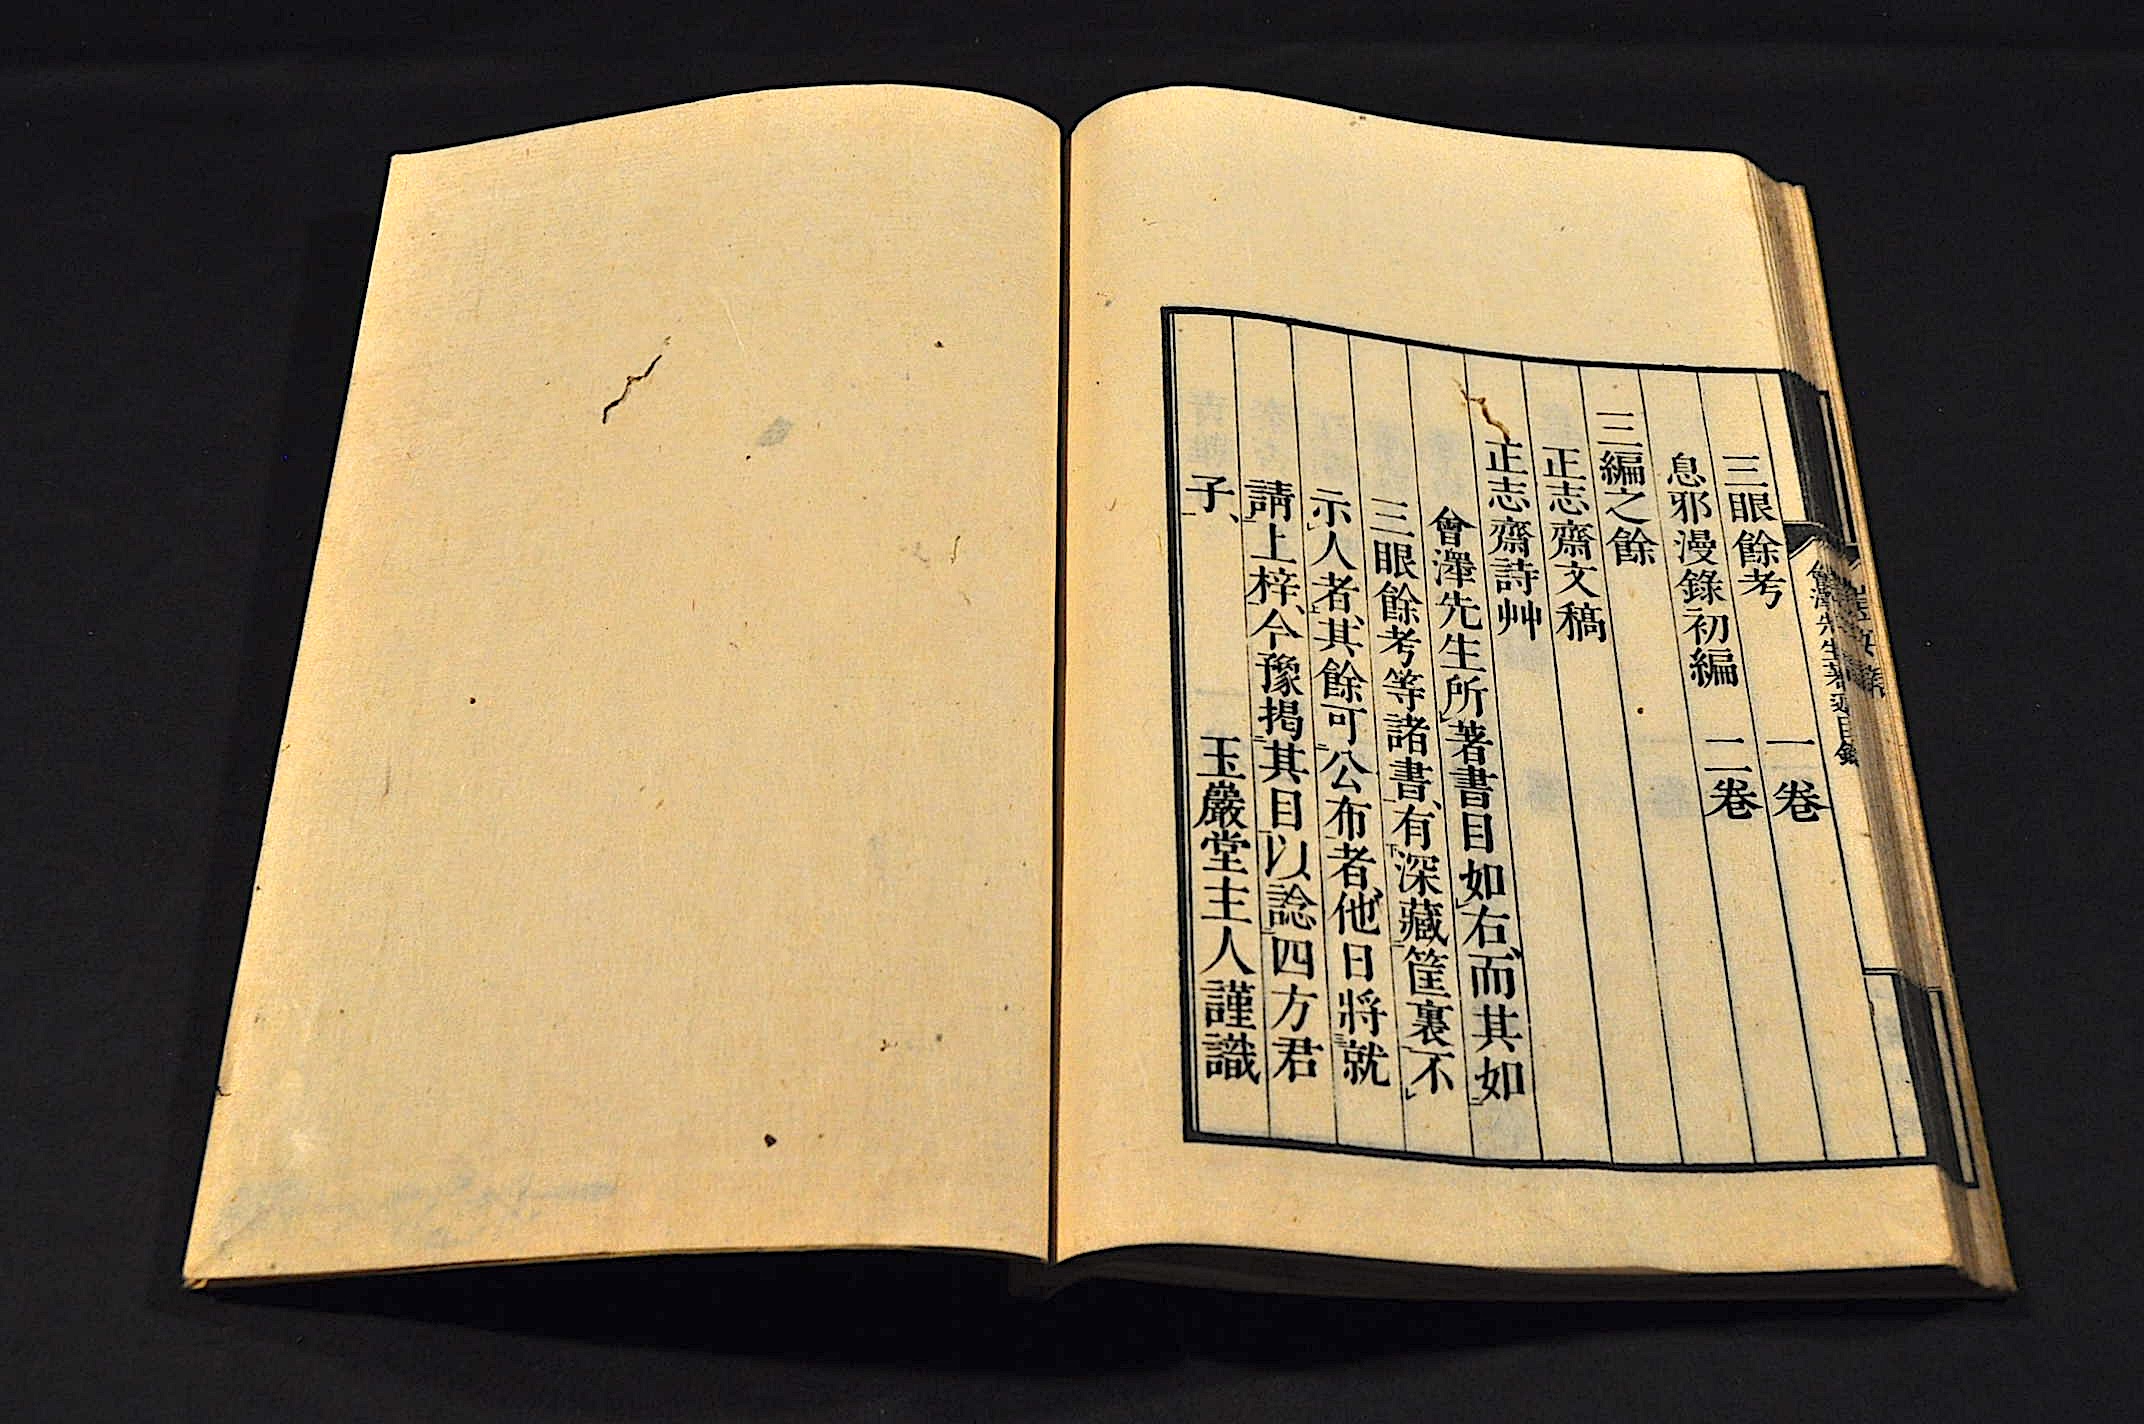 三眼餘考 一卷
息邪漫錄初編 二卷
三編之餘
正志齋文稿
正志齋詩艸
會澤先生所著書目如右、而其如
三眼餘考等諸書、有深藏筐裏不
示人者、其餘可公布者、他日將就
請上梓、今豫揭其目以諗四方君
子、
玉巖堂主人謹識
會澤先生著述目錄